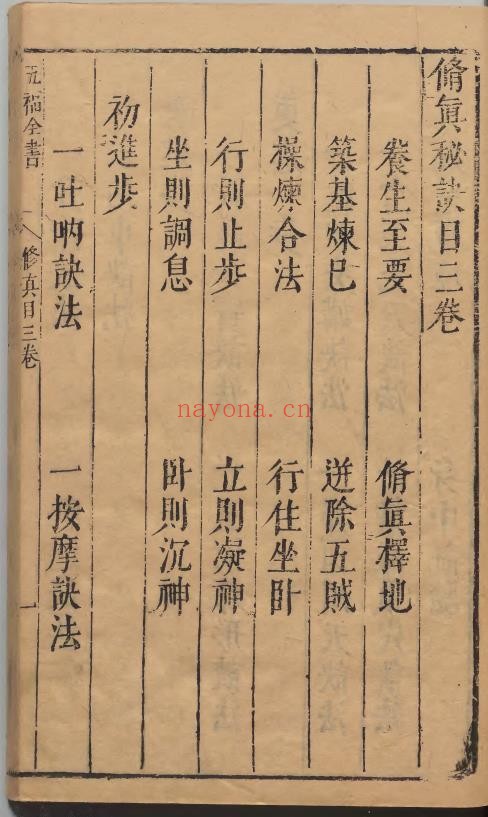 脩真秘訣目三卷
養生至要 脩真擇地
築基煉巳 迸除五賊
操煉合法 行住坐卧
行則止步 立則凝神
坐則調息 卧則沉神
初進步
一吐吶訣法 一按摩訣法
五福全書 修真目三卷 一
nayona.cn